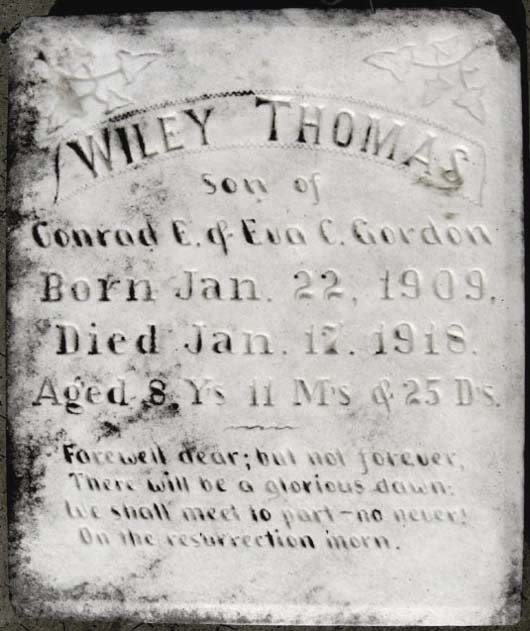 WILEY THOMAS
Son of
Conrad E. & Eva C. Gordon
Born Jan. 22, 1909.
Died Jan. 17. 1918.
Aged 8 Ys 11 M's & 25 D's.
Farewell dear; but not forever,
There will be a glorious dawn:
We shall meet to part—no never!
On the resurrection morn.